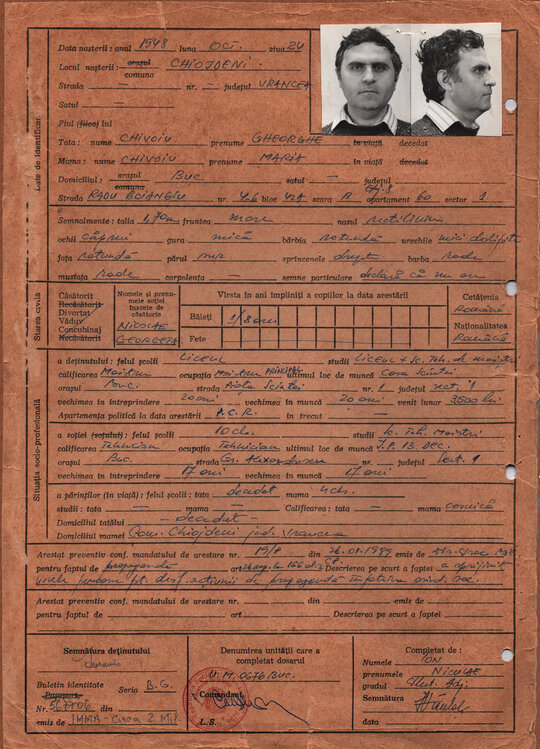 Data nașterii: anul 1948 luna Oct. ziua 24
Locul nașterii: orașul comuna CHIOJDENI
Strada — nr. — județul VRANCEA
Satul —
Fiul (fiica) lui
Tata: nume CHIVOIU prenume GHEORGHE în viață decedat
Mama: nume CHIVOIU prenume MARIA în viață decedat
Domiciliul: orașul comuna BUC. satul — județul
Strada RADU BOIANGIU nr. bloc scara B apartament 60 sector
Date de identificare
Semnalmente: talia 1,70m fruntea mare nasul rectiliniu
ochii căprui gura mică bărbia rotundă urechile mici
fața rotundă părul sprincenele drept barba rade
mustața rade corpolența — semne particulare declară că nu are
Starea civilă
Căsătorit
Necăsătorit
Divorțat
Văduv
Concubinaj
Necăsătorit
Numele și prenumele soției înainte de căsătorie
NICOLAE
GEORGETA
Vîrsta în ani împliniți a copiilor la data arestării
Băieți 1/8 ani
Fete
Cetățenia
Română
Naționalitatea
Română
Situația socio-profesională
a deținutului: felul școlii LICEUL studii Liceul + Sc. Teh. de maiștri
calificarea Maistru ocupația Maistru PRINCIPAL ultimul loc de muncă Casa Scînteii
orașul Buc. strada Piața Scînteii nr. 1 județul sect. 1
vechimea în întreprindere 20 ani vechimea în muncă 20 ani venit lunar 3500 lei
Apartenența politică la data arestării P.C.R. în trecut —
a soției (soțului): felul școlii 10 cls. studii Sc. Teh. Maiștri
calificarea Tehnician ocupația Tehnician ultimul loc de muncă I.P. 13 Dec.
orașul Buc. strada Gr. Alexandrescu nr. județul Sect. 1
vechimea în întreprindere 17 ani vechimea în muncă 17 ani
a părinților (în viață): felul școlii: tata decedat mama 4 cls.
studii: tata — mama — Calificarea: tata — mama casnică
Domiciliul tatălui - decedat -
Domiciliul mamei Com. Chiojdeni jud. Vrancea
Arestat preventiv conf. mandatului de arestare nr. din 26.01.1989 emis de
pentru faptul de propagandă art. 166 Descrierea pe scurt a faptei a sprijinit
unele persoane pt. desf. acțiunii de propagandă împotriva orînd. soc.
Arestat preventiv conf. mandatului de arestare nr. din emis de
pentru faptul de art. Descrierea pe scurt a faptei
Semnătura deținutului
Buletin identitate
Pașaport Seria B.G.
Nr. 567706 din
emis de IMMB - Circa 2 Mil.
Denumirea unității care a completat dosarul
U.M. 0676 Buc.
Comandant
L.S.
Completat de:
Numele ION
prenumele NICOLAE
gradul Plut. Adj.
Semnătura
data